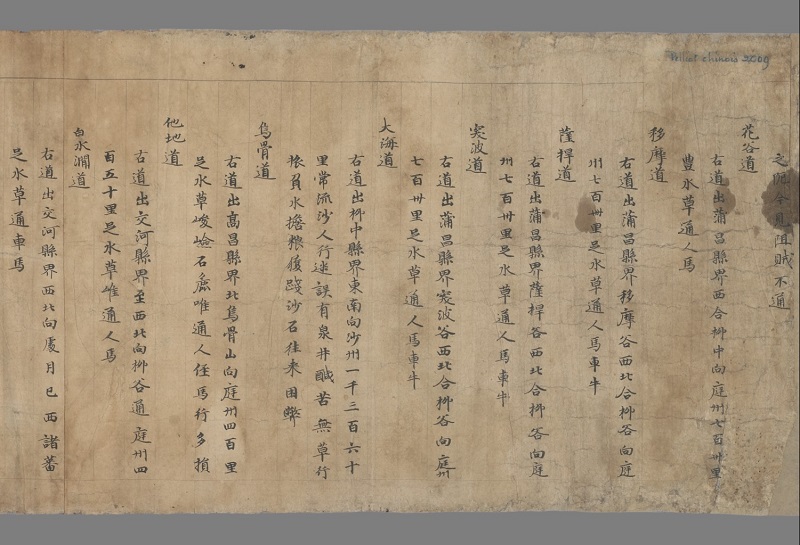 Pelliot chinois 2009
之間今見阻賊不通
花谷道
右道出蒲昌縣界西合柳中向庭州七百卅里
豐水草通人馬
移摩道
右道出蒲昌縣界移摩谷西北合柳谷向庭
州七百卌里足水草通人馬車牛
薩捍道
右道出蒲昌縣界薩捍谷西北合柳谷向庭
州七百卅里足水草通人馬車牛
突波道
右道出蒲昌縣界突波谷西北合柳谷向庭州
七百卅里足水草通人馬車牛
大海道
右道出柳中縣界東南向沙州一千三百六十
里常流沙人行迷誤有泉井鹹苦無草行
旅負水擔粮履踐沙石往來困弊
烏骨道
右道出高昌縣界北烏骨山向庭州四百里
足水草峻嶮石麁唯通人徑馬行多損
他地道
右道出交河縣界至西北向柳谷通庭州四
百五十里足水草唯通人馬
白水澗道
右道出交河縣界西北向處月已西諸蕃
足水草通車馬